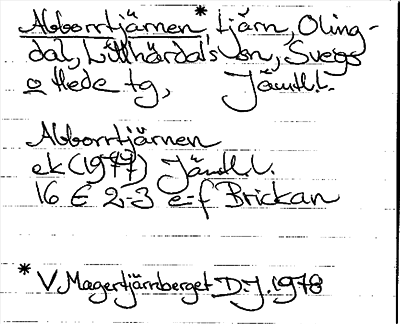 Abborrtjärnen*, tjärn, Oling-
dal, Lillhärdals sn, Svegs
o Hede tg, Jämtl.l.
Abborrtjärnen
ek (1977) Jämtl.l.
16 E 2-3 e-f Brickan
* V. Magertjärnberget D.J. 1978